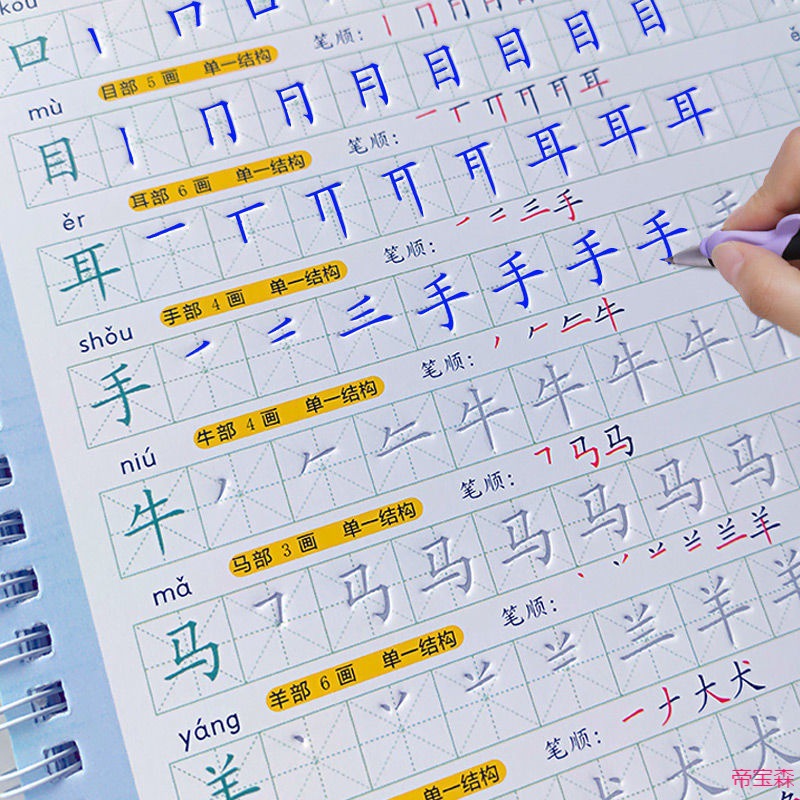 kǒu
口 丨 冂 口
目部 5 画 单一结构 笔顺: 丨 冂 月 月 目
mù
目 丨 冂 月 月 目 目 目 目
耳部 6 画 单一结构 笔顺: 一 丅 丌 耳
ěr
耳 一 丅 丌 耳 耳 耳
手部 4 画 单一结构 笔顺: 一 二 三 手
shǒu
手 一 二 三 手 手 手 手 手
牛部 4 画 单一结构 笔顺: 丿 𠂉 牛
niú
牛 丿 𠂉 牛 牛 牛 牛 牛
马部 3 画 单一结构 笔顺: ㇕ 马 马
mǎ
马 ㇕ 马 马 马 马 马 马
羊部 6 画 单一结构 笔顺: 丶 丷 䒑 兰 羊
yáng
羊 丶 丷 䒑 兰 羊 羊
单一结构 笔顺: 一 ナ 大 犬
犬 犬 犬
帝宝森